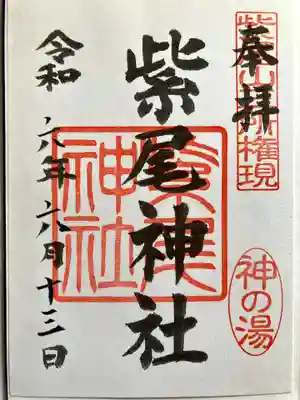 奉拝
紫尾山権現
神の湯
紫尾神社
紫尾神社
令和六年六月十三日